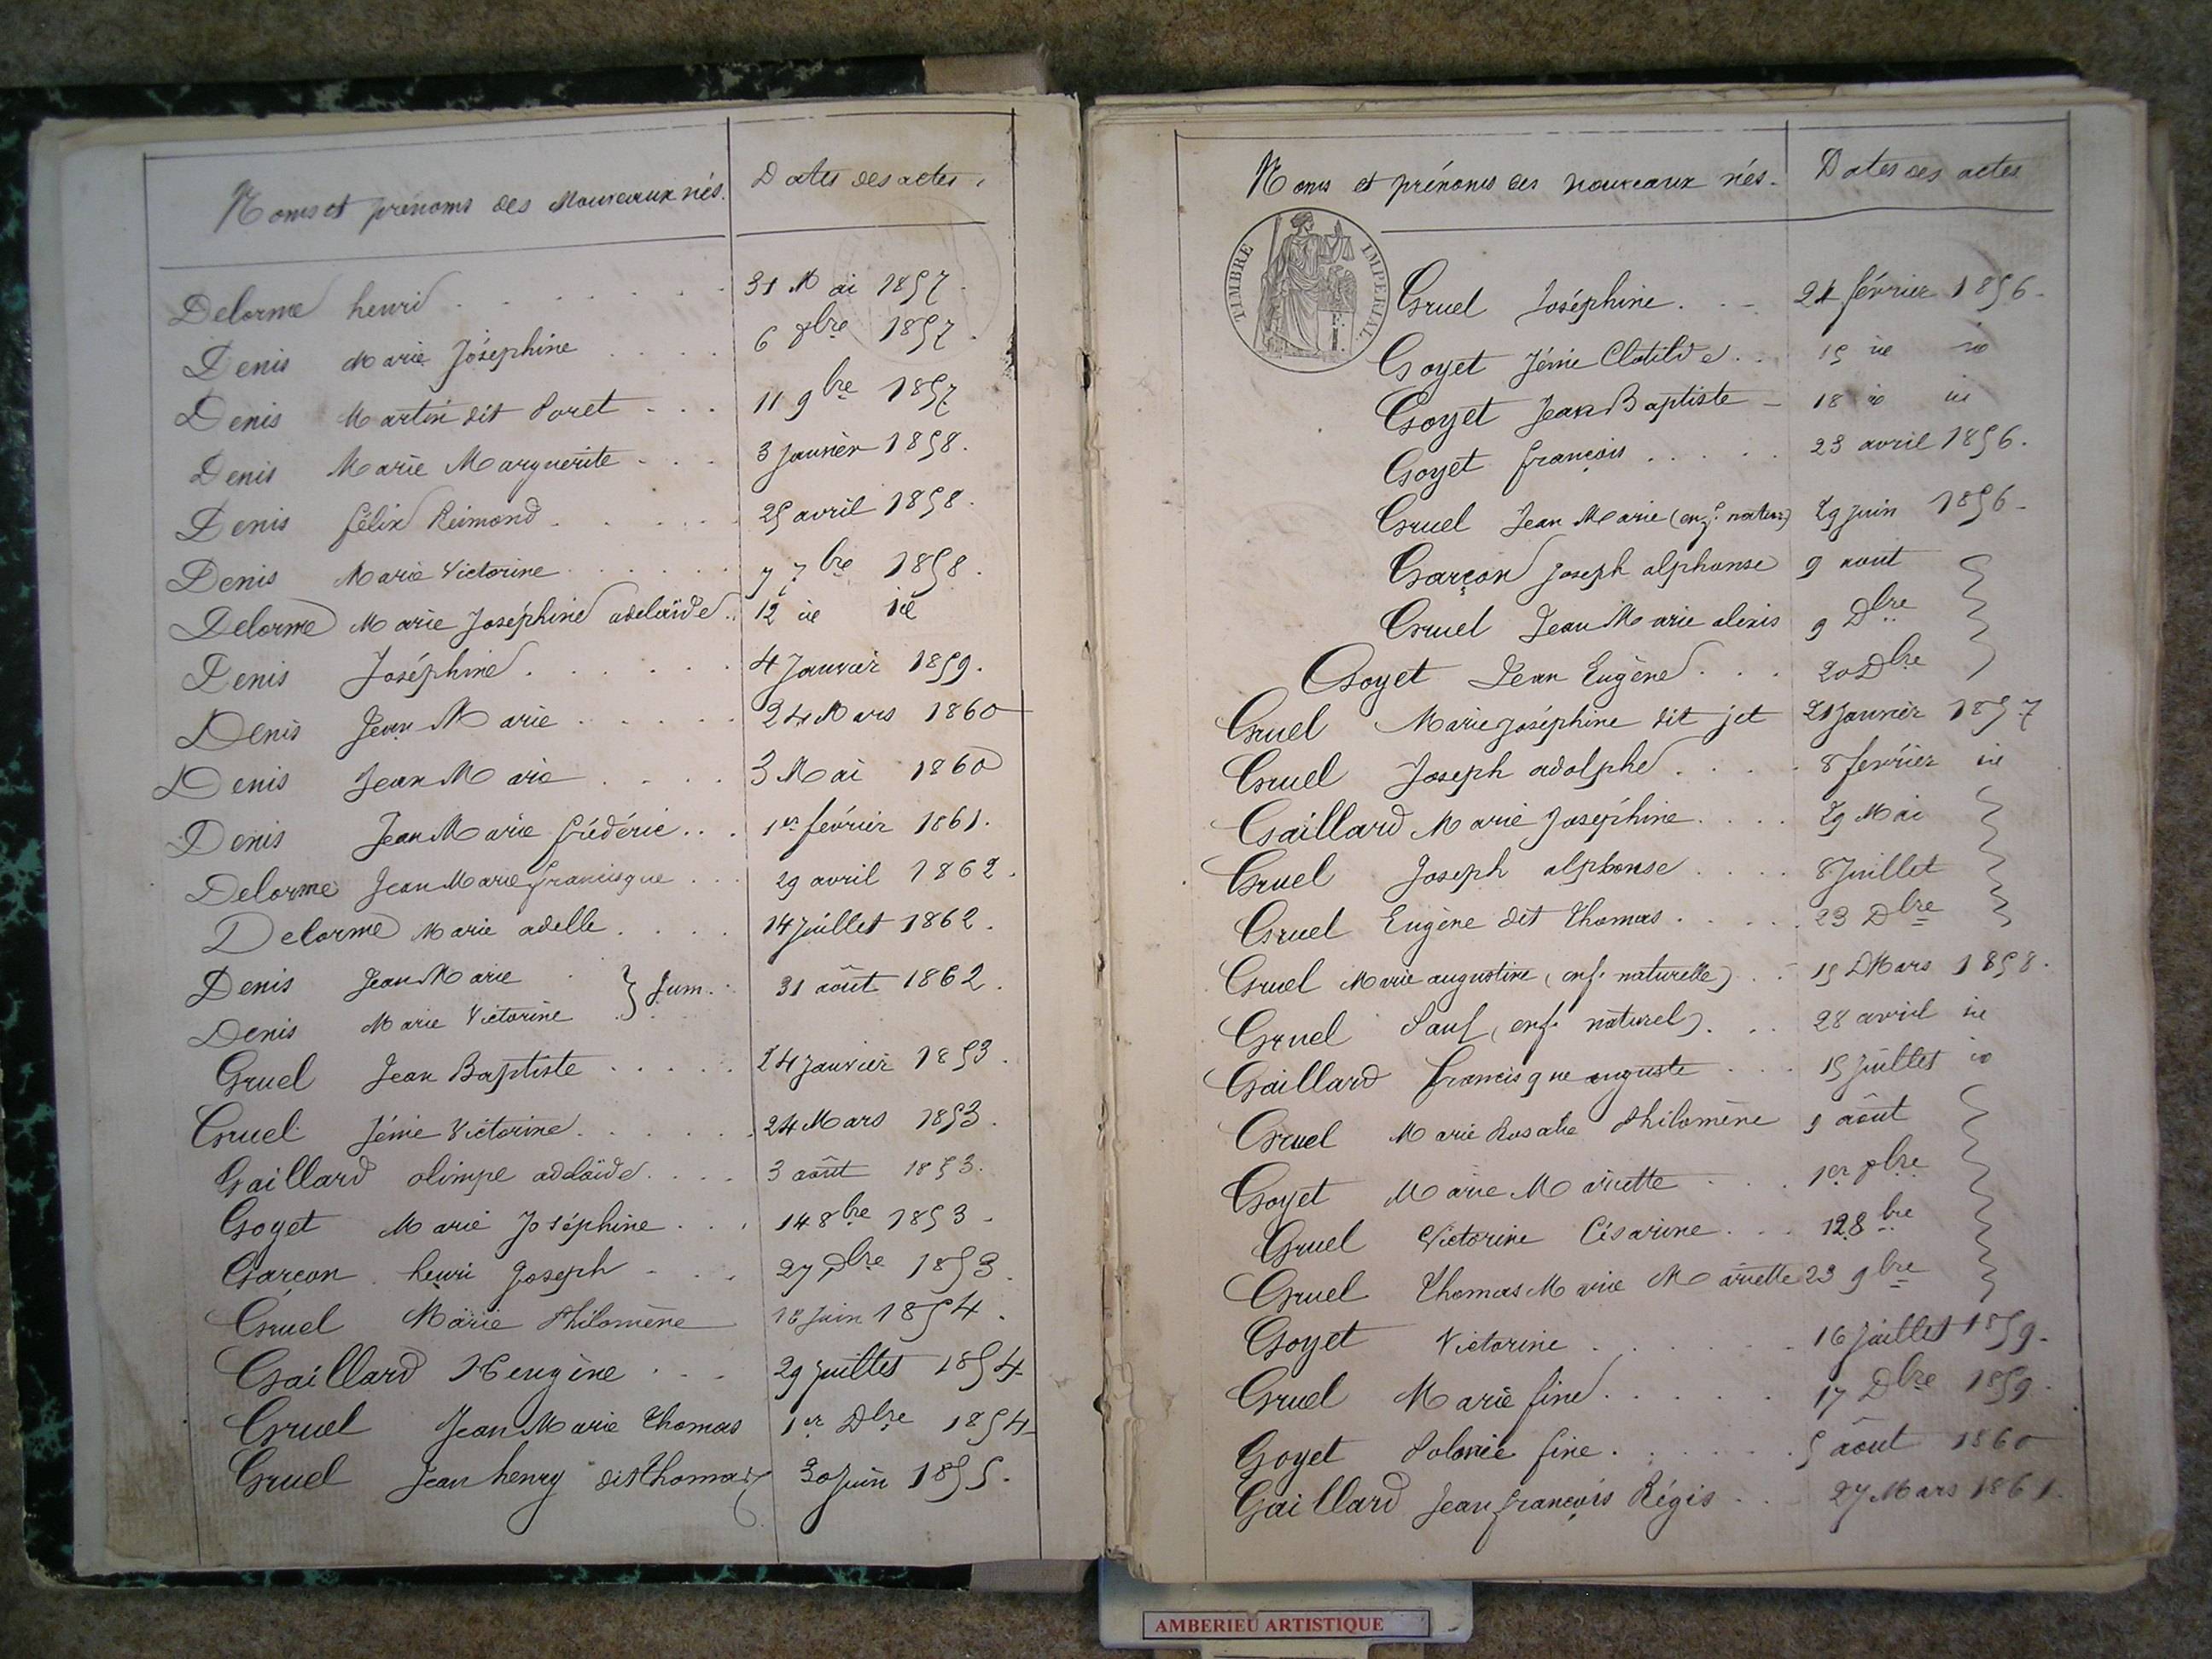 Noms et prénoms des Nouveaux nés. Dates des actes.
Delorme henri 31 Mai 1857
Denis Marie Joséphine 6 8bre 1857
Denis Martin dit Poret 11 9bre 1857
Denis Marie Marguerite 3 Janvier 1858.
Denis félix Reimond 25 avril 1858.
Denis Marie Victorine 7 7bre 1858.
Delorme Marie Joséphine adelaïde 12 id id
Denis Joséphine 4 Janvier 1859.
Denis Jean Marie 24 Mars 1860
Denis Jean Marie 3 Mai 1860
Denis Jean Marie frédéric 1er février 1861.
Delorme Jean Marie francisque 29 avril 1862.
Delorme Marie adelle 14 juillet 1862.
Denis Jean Marie } Jum. 31 août 1862.
Denis Marie Victorine
Gruel Jean Baptiste 24 janvier 1853.
Gruel Jénie Victorine 24 Mars 1853.
Gaillard olimpe adelaïde 3 août 1853.
Goyet Marie Joséphine 14 8bre 1853.
Garçon henri Joseph 27 Dbre 1853.
Gruel Marie Philomène 18 juin 1854.
Gaillard Heugène 29 juillet 1854
Gruel Jean Marie Thomas 1er Dbre 1854
Gruel Jean henry dit thomas 30 juin 1855.
Noms et prénoms des nouveaux nés. Dates des actes
TIMBRE IMPERIAL
Gruel Joséphine 21 février 1856.
Goyet Jénie Clotilde 15 id id
Goyet Jean Baptiste 18 id id
Goyet françois 23 avril 1856.
Gruel Jean Marie (enf. natur) 29 juin 1856
Garçon Joseph alphonse 9 aout
Gruel Jean Marie alexis 9 Dbre
Goyet Jean Eugène 20 Dbre
Gruel Marie Joséphine dit jet 21 Janvier 1857
Gruel Joseph adolphe 8 février id
Gaillard Marie Joséphine 29 Mai
Gruel Joseph alphonse 8 Juillet
Gruel Eugène dit Thomas 23 Dbre
Gruel Marie augustine (enf. naturelle) 15 Mars 1858.
Gruel Paul (enf. naturel) 28 avril id
Gaillard francisque auguste 15 juillet id
Gruel Marie Rosalie Philomène 9 août
Goyet Marie Mariette 1er 8bre
Gruel Victorine Césarine 12 8bre
Gruel Thomas Marie Mariette 23 9bre
Goyet Victorine 16 juillet 1859.
Gruel Marie fine 17 Dbre 1859.
Goyet Polonie fine 5 août 1860
Gaillard Jean françois Régis 27 Mars 1861.
AMBERIEU ARTISTIQUE